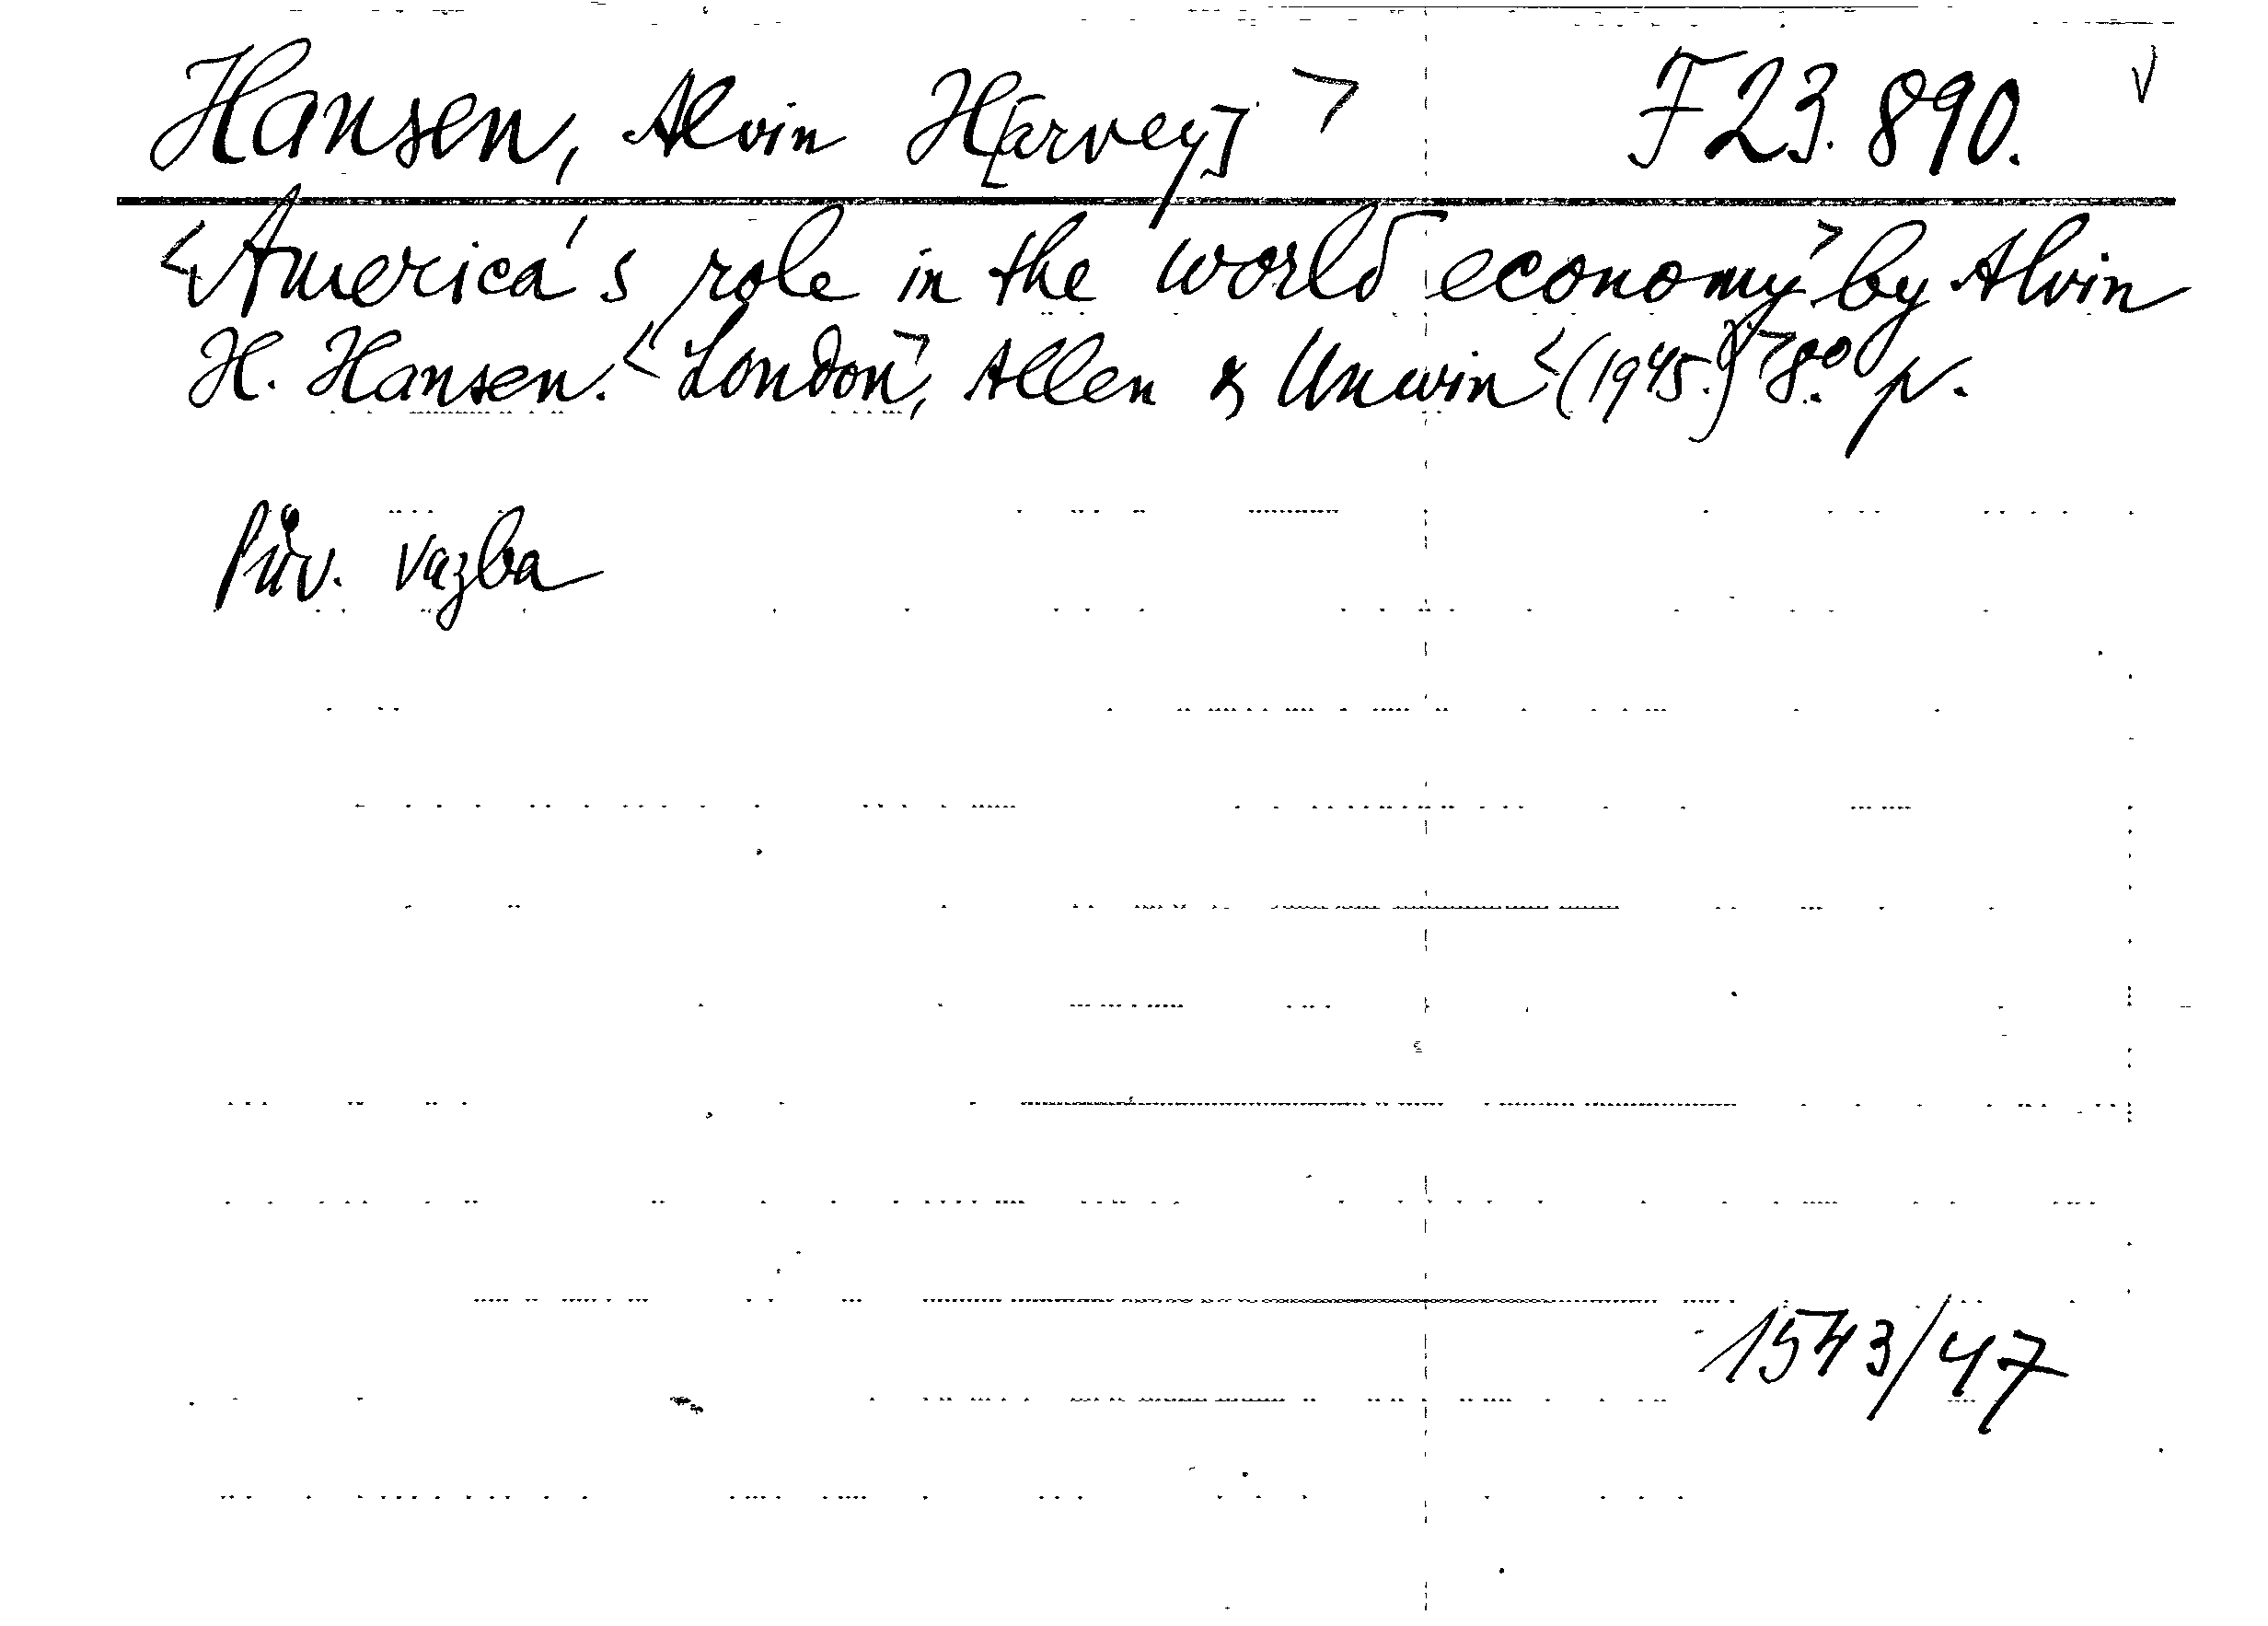 Hansen, Alvin H[arvey] > F 23.890. √
<America's role in the world economy> by Alvin
H. Hansen. <London>, Allen & Unwin <(1945.)> 8.° p.
Pův. vazba
1543/47